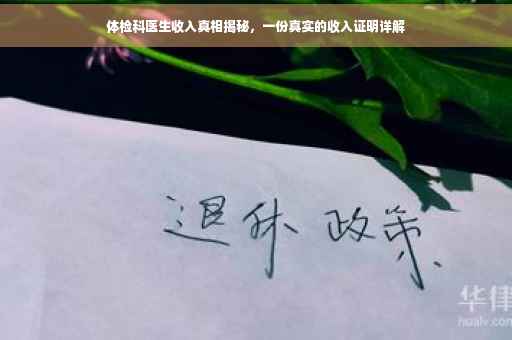 体检科医生收入真相揭秘，一份真实的收入证明详解
退休 政策
华律
hualv.com